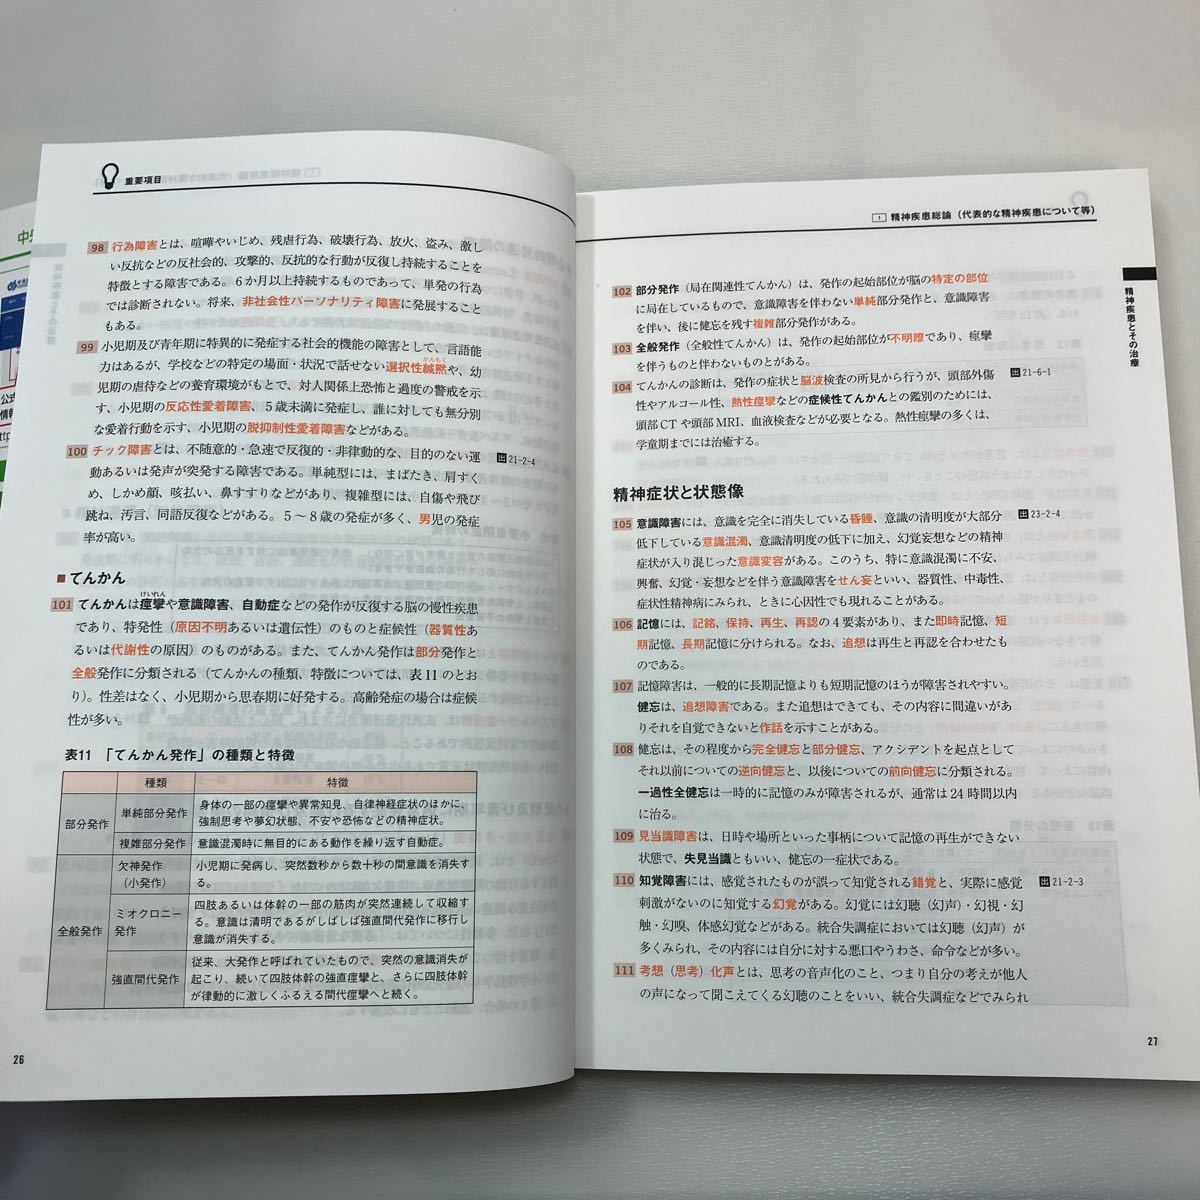 重要項目
98 行為障害とは、喧嘩やいじめ、残虐行為、破壊行為、放火、盗み、激し
い反抗などの反社会的、攻撃的、反抗的な行動が反復し持続することを
特徴とする障害である。6か月以上持続するものであって、単発の行為
では診断されない。将来、非社会性パーソナリティ障害に発展すること
もある。
99 小児期及び青年期に特異的に発症する社会的機能の障害として、言語能
力はあるが、学校などの特定の場面・状況で話せない選択性緘黙や、幼
かんもく
児期の虐待などの養育環境がもとで、対人関係上恐怖と過度の警戒を示
す、小児期の反応性愛着障害、5歳未満に発症し、誰に対しても無分別
な愛着行動を示す、小児期の脱抑制性愛着障害などがある。
100 チック障害とは、不随意的・急速で反復的・非律動的な、目的のない運 出21-2-4
動あるいは発声が突発する障害である。単純型には、まばたき、肩すく
め、しかめ顔、咳払い、鼻すすりなどがあり、複雑型には、自傷や飛び
跳ね、汚言、同語反復などがある。5~8歳の発症が多く、男児の発症
率が高い。
■ てんかん
けいれん
101 てんかんは痙攣や意識障害、自動症などの発作が反復する脳の慢性疾患
であり、特発性（原因不明あるいは遺伝性）のものと症候性（器質性あ
るいは代謝性の原因）のものがある。また、てんかん発作は部分発作と
全般発作に分類される（てんかんの種類、特徴については、表11のとお
り）。性差はなく、小児期から思春期に好発する。高齢発症の場合は症候
性が多い。
表11 「てんかん発作」の種類と特徴
種類 特徴
部分発作 単純部分発作 身体の一部の痙攣や異常知見、自律神経症状のほかに、
強制思考や夢幻状態、不安や恐怖などの精神症状。
複雑部分発作 意識混濁時に無目的にある動作を繰り返す自動症。
全般発作 欠神発作
（小発作） 小児期に発病し、突然数秒から数十秒の間意識を消失す
る。
ミオクロニー
発作 四肢あるいは体幹の一部の筋肉が突然連続して収縮す
る。意識は清明であるがしばしば強直間代発作に移行し
意識が消失する。
強直間代発作 従来、大発作と呼ばれていたもので、突然の意識消失が
起こり、続いて四肢体幹の強直痙攣と、さらに四肢体幹
が律動的に激しくふるえる間代痙攣へと続く。
26
1 精神疾患総論（代表的な精神疾患について等）
精神疾患とその治療
102 部分発作（局在関連性てんかん）は、発作の起始部位が脳の特定の部位
に局在しているもので、意識障害を伴わない単純部分発作と、意識障害
を伴い、後に健忘を残す複雑部分発作がある。
103 全般発作（全般性てんかん）は、発作の起始部位が不明瞭であり、痙攣
を伴うものと伴わないものとがある。
104 てんかんの診断は、発作の症状と脳波検査の所見から行うが、頭部外傷 出21-6-1
性やアルコール性、熱性痙攣などの症候性てんかんとの鑑別のためには、
頭部CTや頭部MRI、血液検査などが必要となる。熱性痙攣の多くは、
学童期までには治癒する。
精神症状と状態像
105 意識障害には、意識を完全に消失している昏睡、意識の清明度が大部分 出23-2-4
低下している意識混濁、意識清明度の低下に加え、幻覚妄想などの精神
症状が入り混じった意識変容がある。このうち、特に意識混濁に不安、
興奮、幻覚・妄想などを伴う意識障害をせん妄といい、器質性、中毒性、
症状性精神病にみられ、ときに心因性でも現れることがある。
106 記憶には、記銘、保持、再生、再認の4要素があり、また即時記憶、短
期記憶、長期記憶に分けられる。なお、追想は再生と再認を合わせたも
のである。
107 記憶障害は、一般的に長期記憶よりも短期記憶のほうが障害されやすい。
健忘は、追想障害である。また追想はできても、その内容に間違いがあ
りそれを自覚できないと作話を示すことがある。
108 健忘は、その程度から完全健忘と部分健忘、アクシデントを起点として
それ以前についての逆向健忘と、以後についての前向健忘に分類される。
一過性全健忘は一時的に記憶のみが障害されるが、通常は24時間以内
に治る。
109 見当識障害は、日時や場所といった事柄について記憶の再生ができない
状態で、失見当識ともいい、健忘の一症状である。
110 知覚障害には、感覚されたものが誤って知覚される錯覚と、実際に感覚 出21-2-3
刺激がないのに知覚する幻覚がある。幻覚には幻聴（幻声）・幻視・幻
触・幻嗅、体感幻覚などがある。統合失調症においては幻聴（幻声）が
多くみられ、その内容には自分に対する悪口やうわさ、命令などが多い。
111 考想（思考）化声とは、思考の音声化のこと、つまり自分の考えが他人
の声になって聞こえてくる幻聴のことをいい、統合失調症などでみられ
27